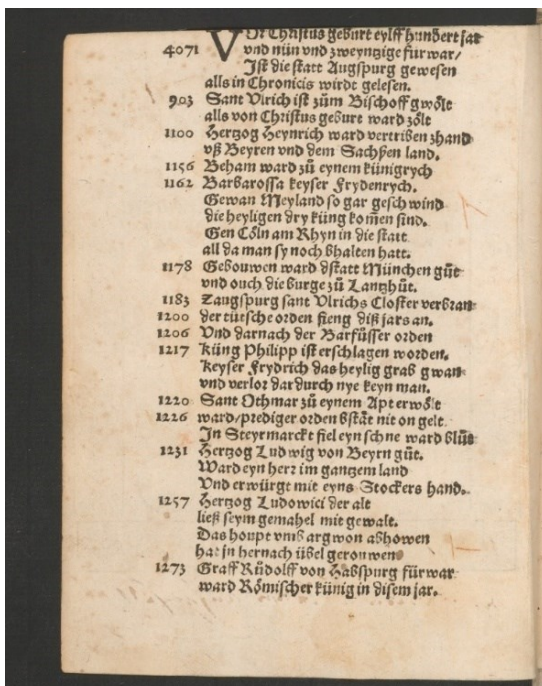 VOr Christus geburt eylff hundert jar
4071 vnd nün vnd zweyntzige für war/
Ist die statt Augspurg gewesen
alls in Chronicis wirdt gelesen.
903 Sant Vlrich ist zům Bischoff gwölt
alls von Christus geburt ward zölt
1100 Hertzog Heynrich ward vertriben zhand
vß Beyren vnd dem Sachßen land.
1156 Beham ward zů eynem künigrych
1162 Barbarossa keyser Frydenrych.
Gewan Meyland so gar geschwind
die heyligen dry küng kom̃en sind.
Gen Cöln am Rhyn in die statt
all da man sy noch bhalten hatt.
1178 Gebouwen ward dstatt München gůt
vnd ouch die burge zů Lantzhůt.
1183 Zaugspurg sant Vlrichs Closter verbran
1200 der tütsche orden fieng diß jars an.
1206 Vnd darnach der Barfüsser orden
1217 Küng Philipp ist erschlagen worden.
Keyser Frydrich das heylig grab gwan
vnd verlor dardurch nye keyn man.
1220 Sant Othmar zů eynem Apt erwölt
1226 ward/prediger orden bstät nit on gelt.
In Steyrmarckt fiel eyn schne ward blůt
1231 Hertzog Ludwig von Beyrn gůt.
Ward eyn herr im gantzem land
Vnd erwürgt mit eyns Stockers hand.
1257 Hertzog Ludowici der alt
ließ seym gemahel mit gewalt.
Das houpt vmb argwon abhowen
hat jn hernach übel gerouwen
1273 Graff Růdolff von Habspurg für war
ward Römischer künig in disem jar.